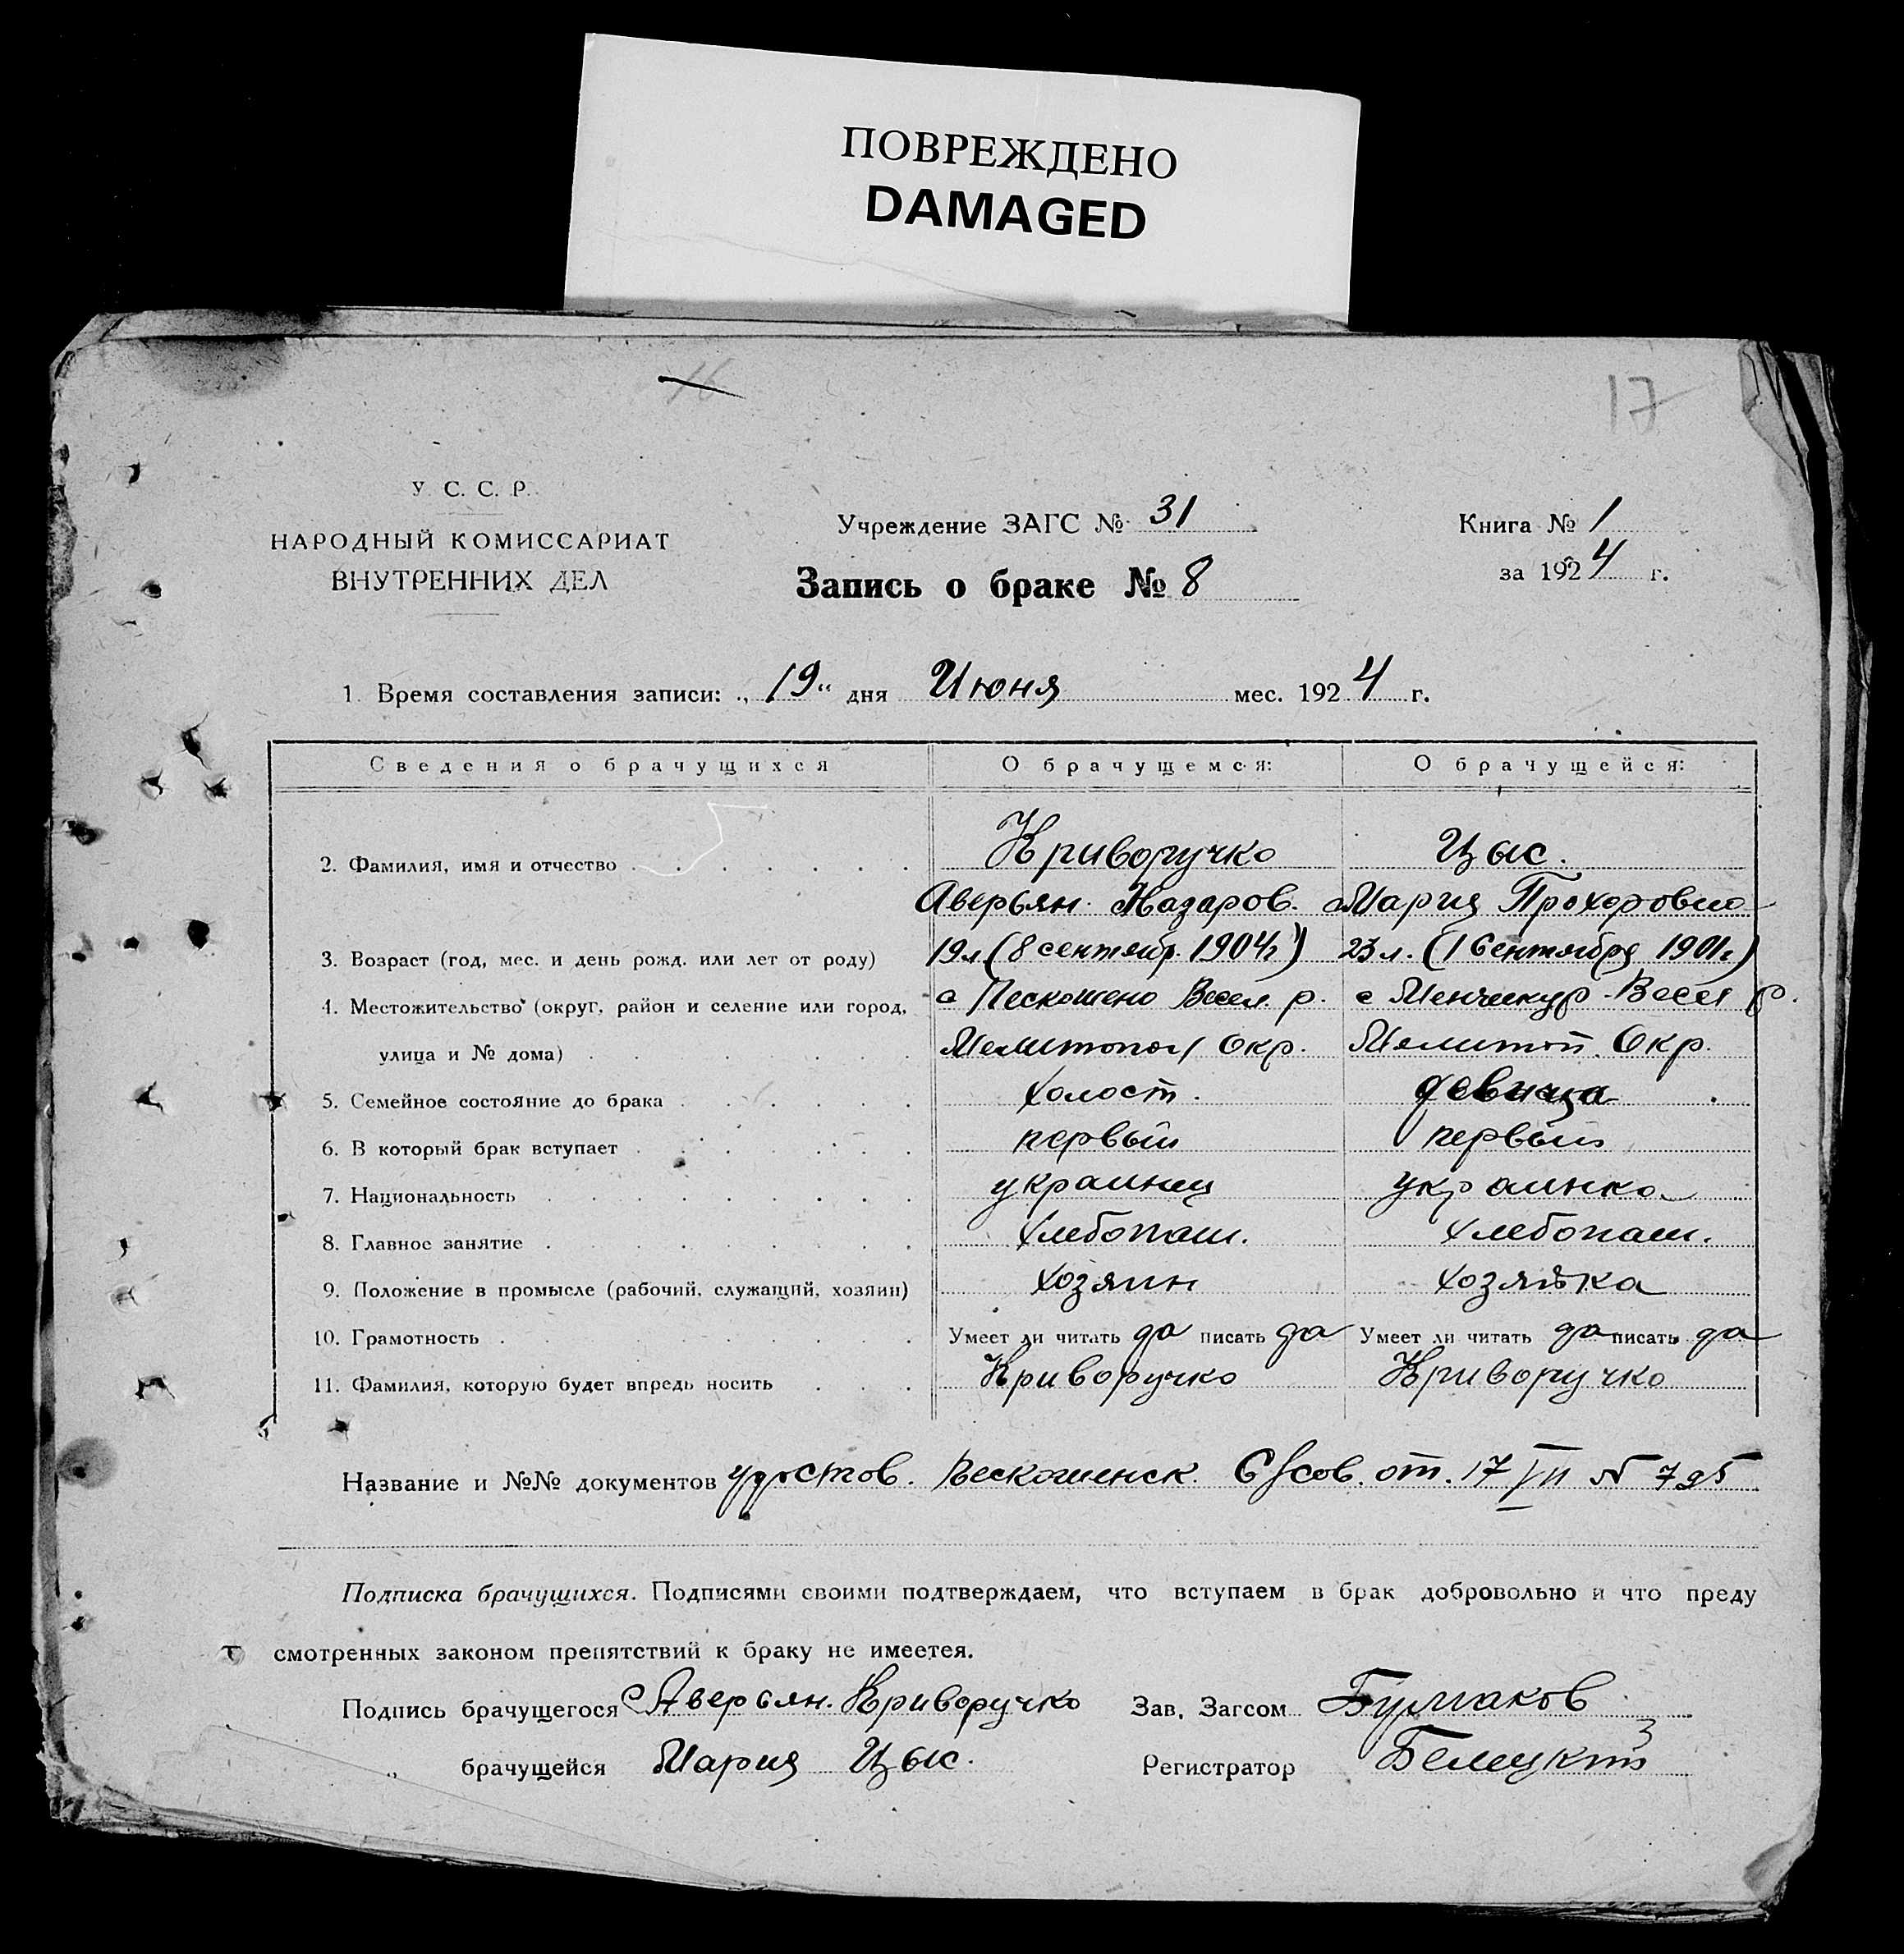 ПОВРЕЖДЕНО
DAMAGED
16
17
У. С. С. Р.
НАРОДНЫЙ КОМИССАРИАТ
ВНУТРЕННИХ ДЕЛ
Учреждение ЗАГС № 31
Запись о браке № 8
Книга № 1
за 1924 г.
1. Время составления записи: „19“ дня Июня мес. 1924 г.
Сведения о брачущихся О брачущемся: О брачущейся:
2. Фамилия, имя и отчество Криворучко Цыс.
Аверьян. Назаров. Мария Прохоровна
3. Возраст (год, мес. и день рожд. или лет от роду) 19л (8 сентябр. 1904г) 23 л. (1 Сентября 1901г)
4. Местожительство (округ, район и селение или город, с Пескошено Весел. р. с Менчикур Весел р.
улица и № дома) Мелитопол Окр. Мелитоп. Окр.
5. Семейное состояние до брака холост. девица
6. В который брак вступает первый первый
7. Национальность украинец украинка
8. Главное занятие хлебопаш. хлебопаш.
9. Положение в промысле (рабочий, служащий, хозяин) хозяин хозяйка
10. Грамотность Умеет ли читать да писать да Умеет ли читать да писать да
11. Фамилия, которую будет впредь носить Криворучко Криворучко
Название и №№ документов удостов. Пескошенск. С/сов. от. 17 VII № 795
Подписка брачущихся. Подписями своими подтверждаем, что вступаем в брак добровольно и что преду
смотренных законом препятствий к браку не имеется.
Подпись брачущегося Аверьян. Криворучко Зав. Загсом Бурлаков
„ брачущейся Мария Цыс. Регистратор Белецкий